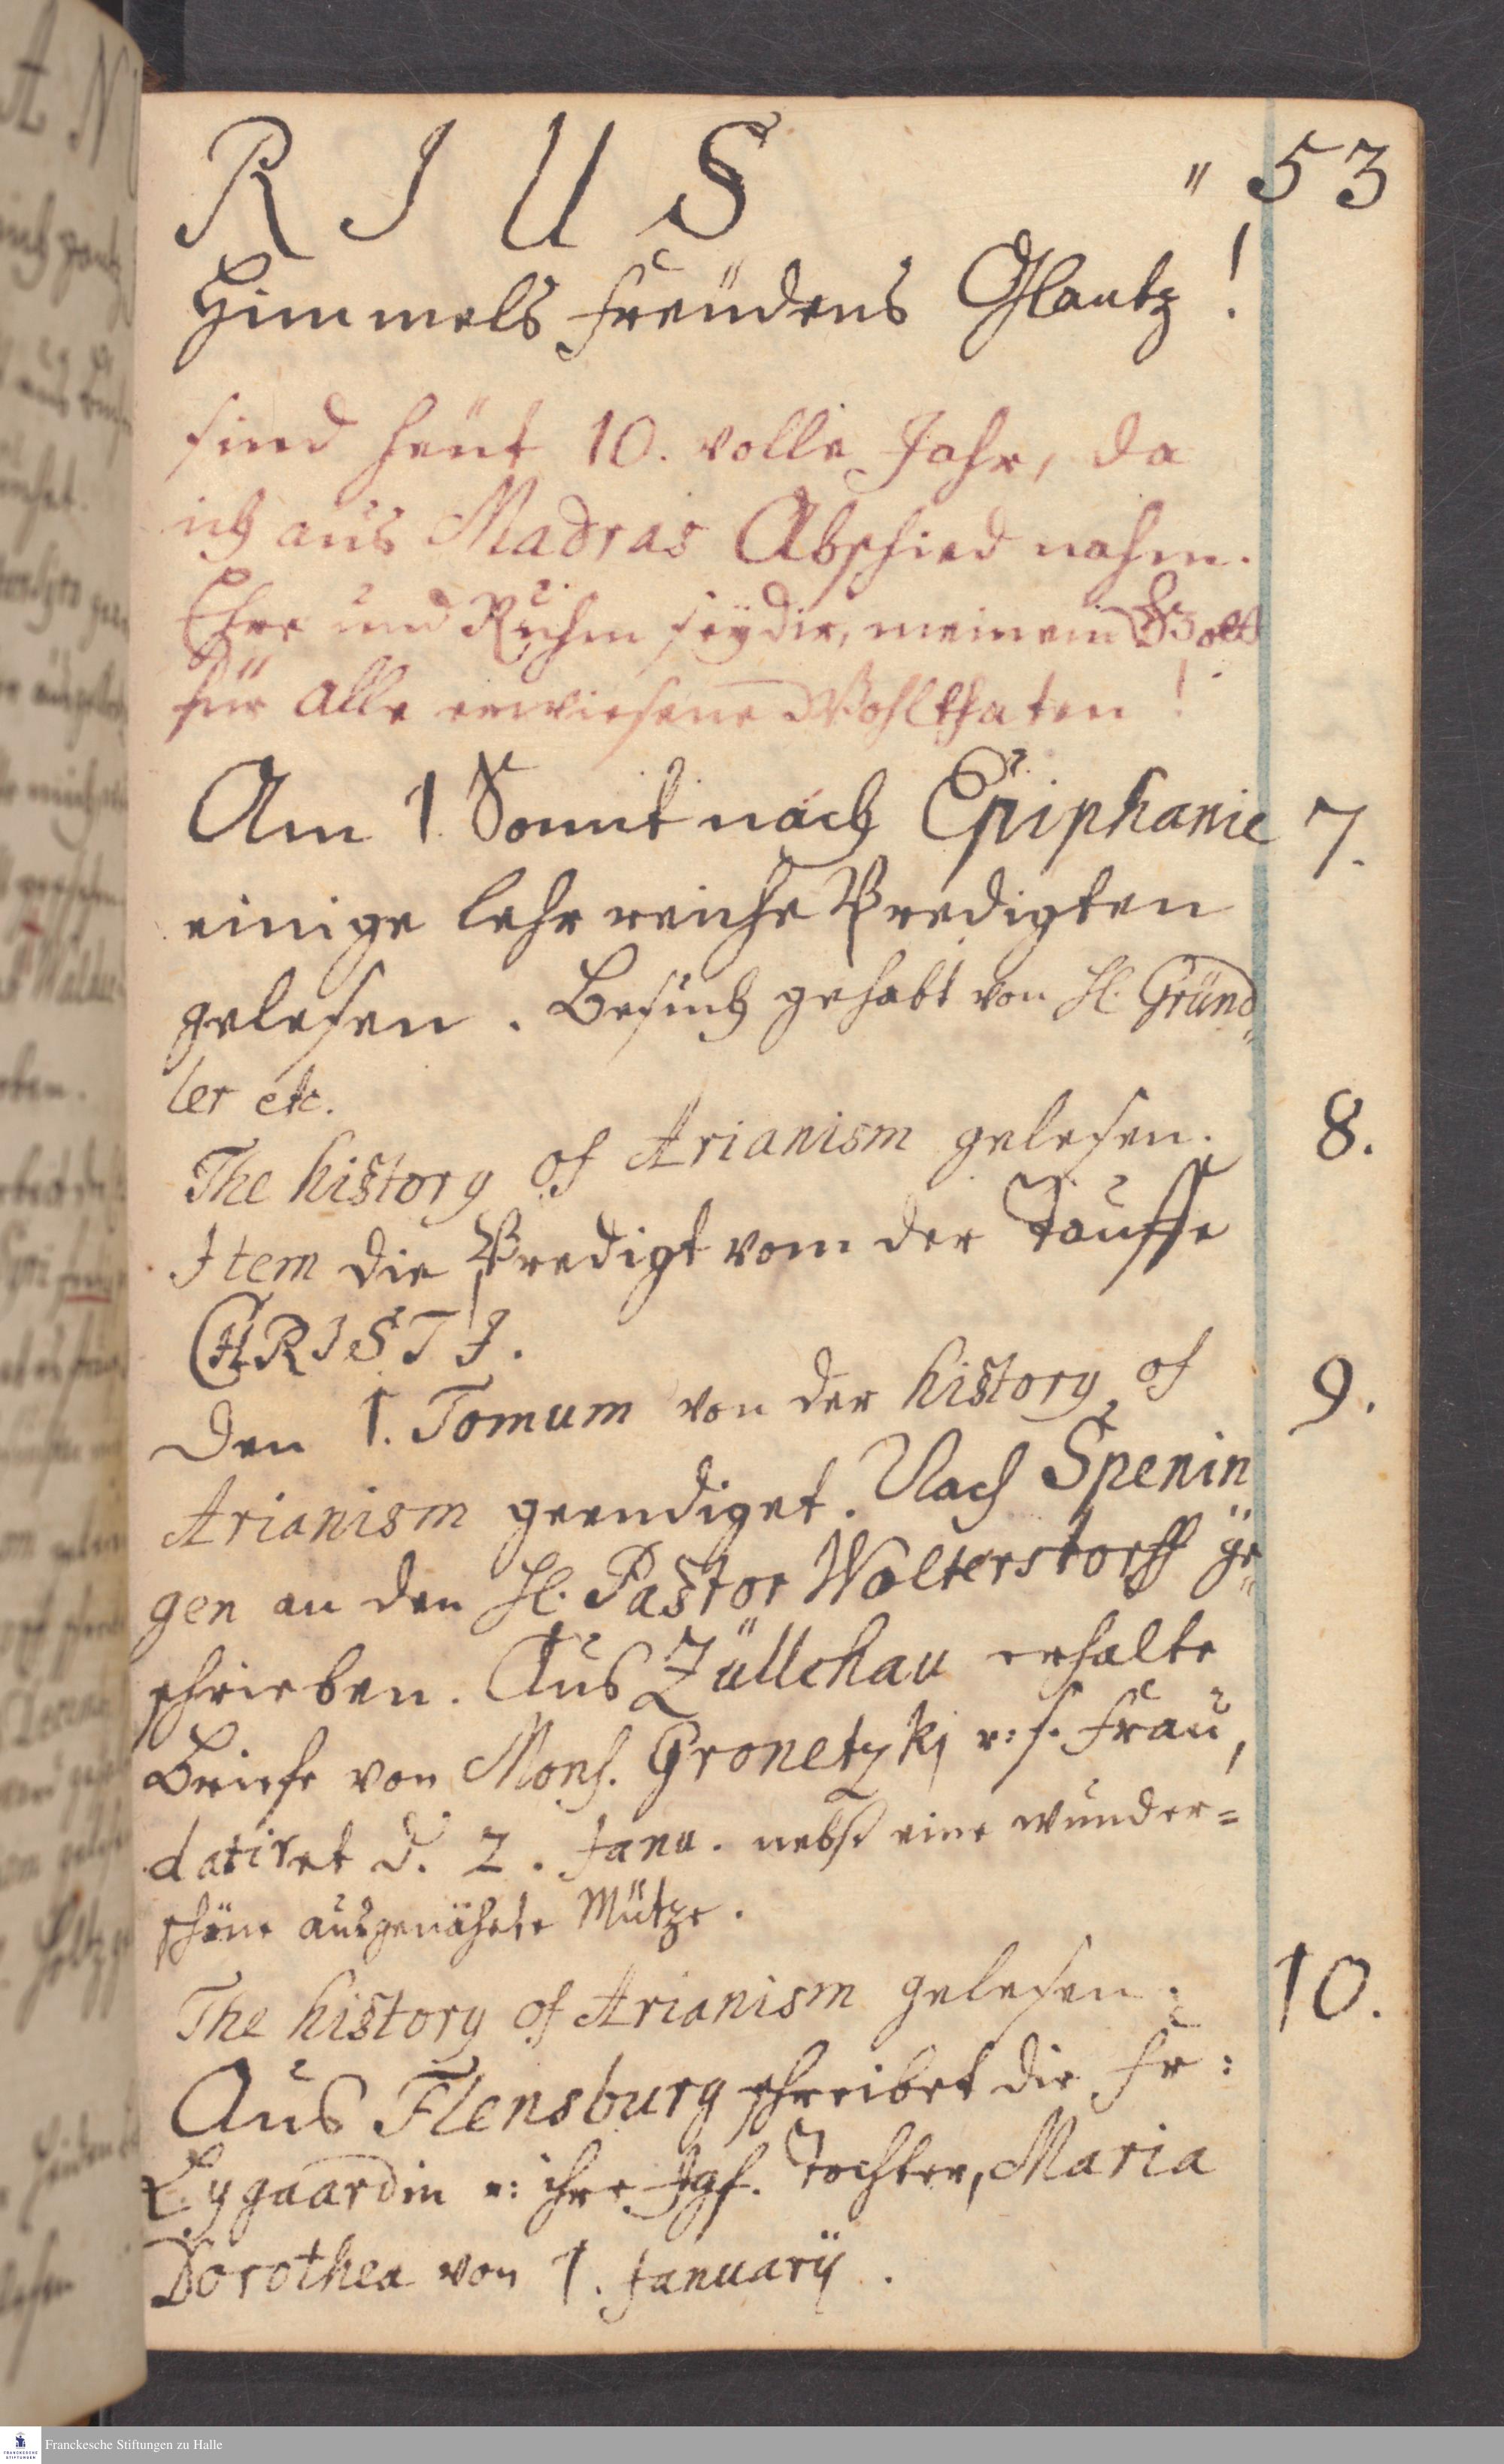 R I U S " 53
Himmels Freüdens Glantz!
sind heüt 10. volle Jahr, da
ich aus Madras Abschied nahm.
Ehre und Ruhm seÿ dir, meinem Gott
für alle erwiesene Wohlthaten!
Am 1. Sonnt nach Epiphanie 7.
einige lehrreiche Predigten
gelesen. Besuch gehabt von H. Gründ„
ler etc.
The history of Arianism gelesen. 8.
Item die Predigt vom der Tauffe
CHRISTI.
Den 1. Tomum von der history of 9.
Arianism geendiget. Nach Spenin
gen an den H. Pastor Wolterstorff ge„
schrieben. Aus Züllchau erhalte
Briefe von Mons. Gronetzkj u: s. Frau,
datiret d. 2. Janu. nebst eine wunder=
schöne ausgenähete Mütze.
The history of Arianism gelesen. 10.
Aus Flensburg schreibet die Fr:
Lygaardin u: ihre Jgf. Tochter, Maria
Dorothea von 1. Januarÿ.
Franckesche Stiftungen zu Halle